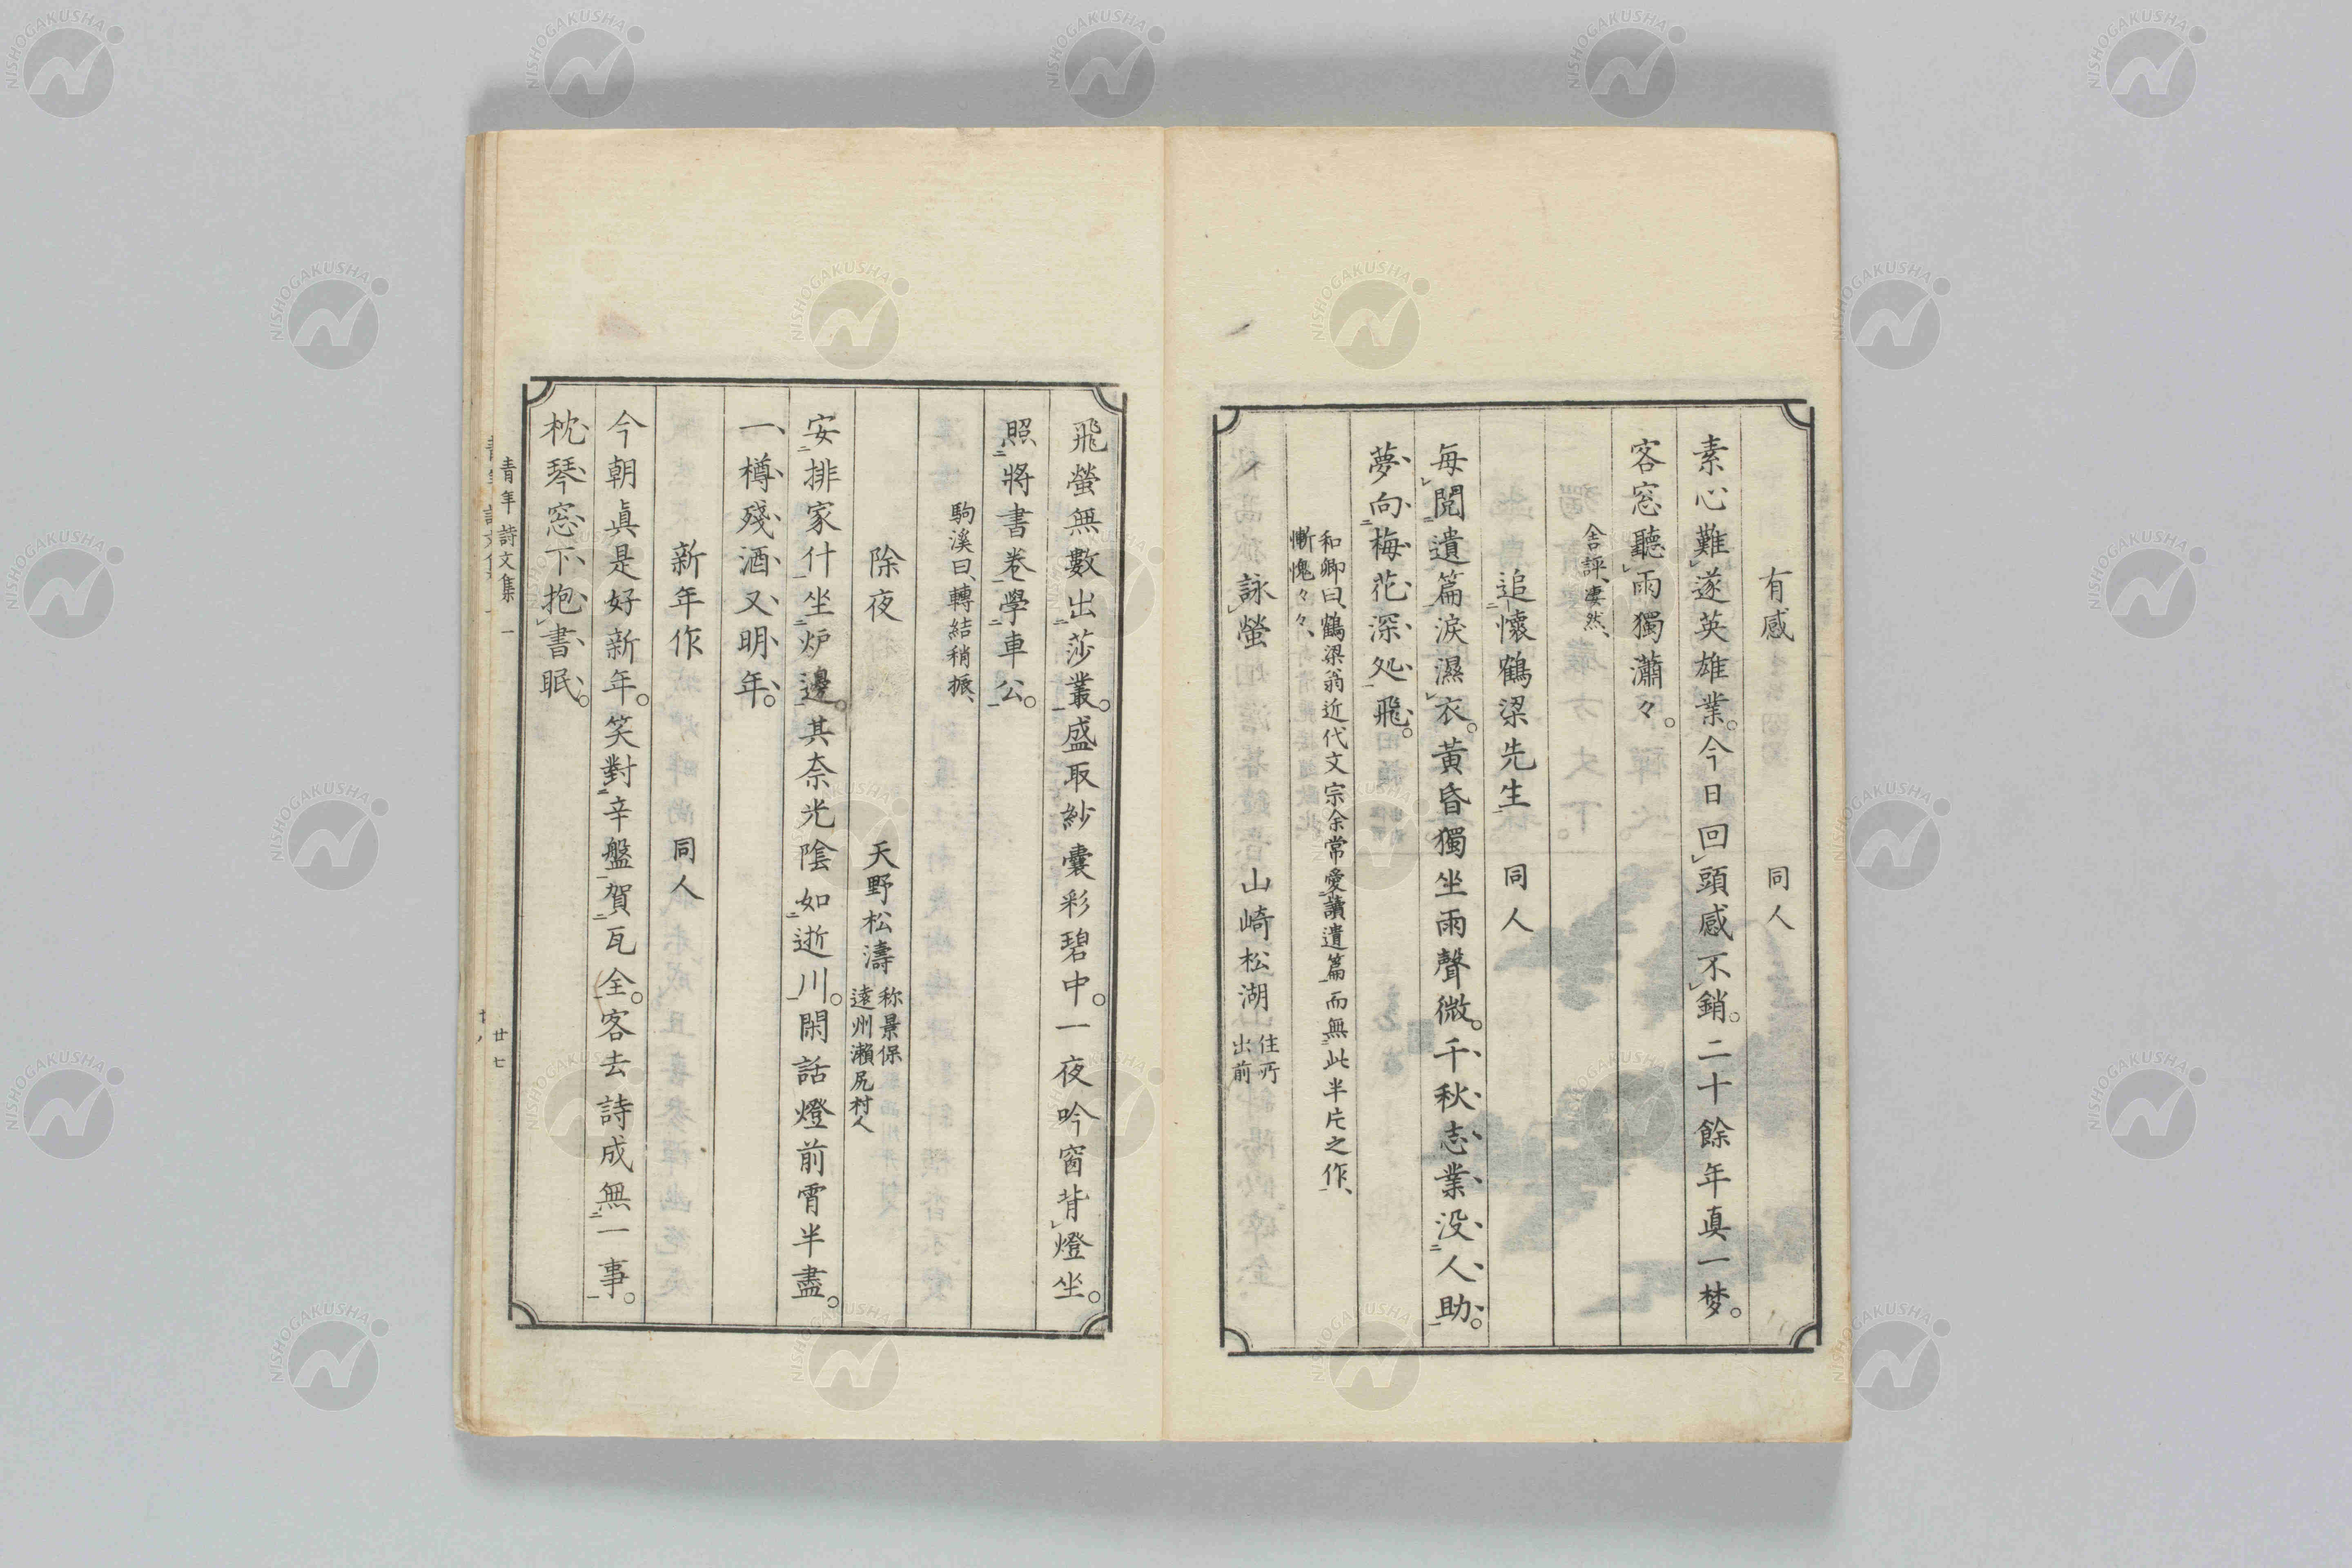 有感　同人
素心難遂英雄業。今日回頭感不銷。二十餘年真一梦。
客窓聽雨獨瀟々。
舎評、凄然、
追懷鶴梁先生　同人
每閲遺篇涙濕衣。黄昏獨坐雨聲微。千秋志業没人助。
夢向梅花深処飛。
和卿曰、鶴梁翁近代文宗余常愛讀遺篇而無此半片之作、
慚愧々々、
詠螢　山崎松湖 住所出前
飛螢無數出莎叢。盛取紗囊彩碧中。一夜吟窗背燈坐。
照將書巻學車公。
駒溪曰、轉結稍振、
除夜　天野松濤 称景保遠州瀨尻村人
安排家什坐炉邊。其奈光陰如逝川。閑話燈前宵半盡。
一樽殘酒又明年。
新年作　同人
今朝眞是好新年。笑對辛盤賀瓦全。客去詩成無一事。
枕琴窓下抱書眠。
青年詩文集 一
廿七
NISHOGAKUSHA